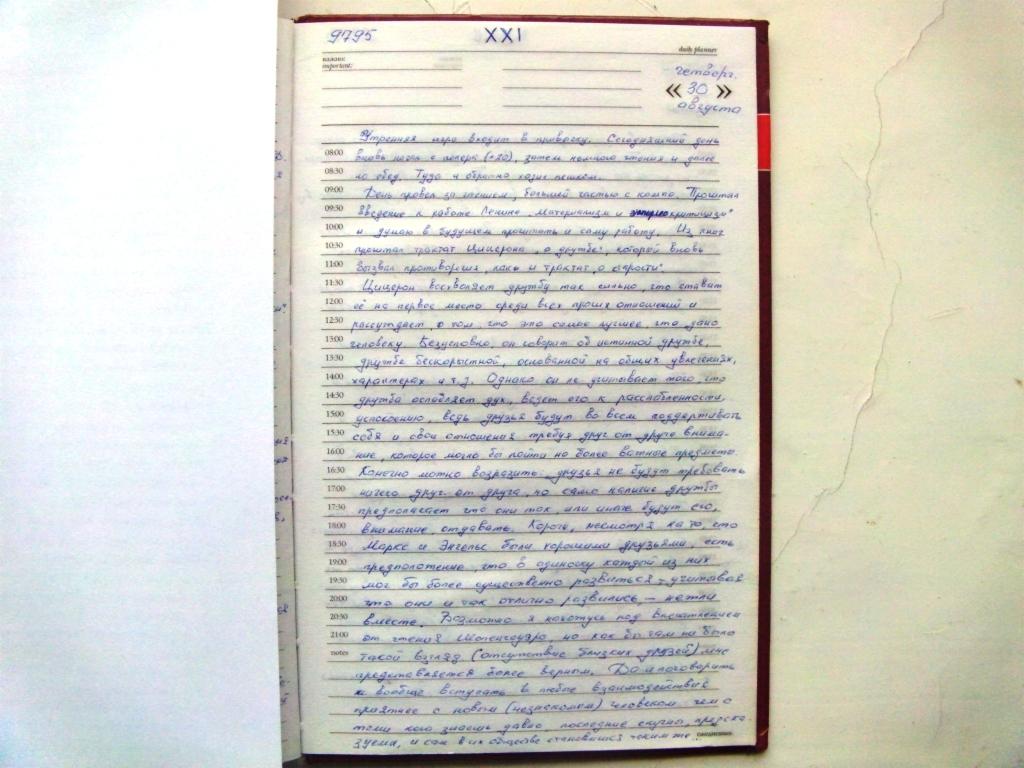 9795
XXI
daily planner
важно:
important:
четверг.
« 30 »
августа
Утренняя игра входит в привычку. Сегодняшний день
08:00
вновь начал с покера (+20), затем немного чтения и далее
08:30
на обед. Туда и обратно ходил пешком.
09:00
День провел за чтением, большей частью с компа. Прочитал
09:30
введение к работе Ленина „Материализм и эмпириокритицизм"
10:00
и думаю в будущем прочитать и саму работу. Из книг
10:30
прочитал трактат Цицерона „о дружбе", который вновь
11:00
вызвал противоречия, как и трактат „о старости".
11:30
Цицерон восхваляет дружбу так сильно, что ставит
12:00
её на первое место среди всех прочих отношений и
12:30
рассуждает о том, что это самое лучшее, что дано
13:00
человеку. Безусловно, он говорит об истинной дружбе,
13:30
дружбе бескорыстной, основанной на общих увлечениях,
14:00
характерах и т.д. Однако он не учитывает того, что
14:30
дружба ослабляет дух, ведет его к расслабленности,
15:00
успокоению, ведь друзья будут во всем поддерживать
15:30
себя и свои отношения требуя друг от друга внима-
16:00
ние, которое могло бы пойти на более важные предметы.
16:30
Конечно можно возразить: друзья не будут требовать
17:00
ничего друг от друга, но само наличие дружбы
17:30
предполагает что они так или иначе будут его,
18:00
внимание, отдавать. Короче, несмотря на то, что
18:30
Маркс и Энгельс были хорошими друзьями, есть
19:00
предположение, что в одиночку каждый из них
19:30
мог бы более существенно развиться – учитывая
20:00
что они и так отлично развились, – нежели
20:30
вместе. Возможно я нахожусь под впечатлением
21:00
от чтения Шопенгауэра, но как бы там ни было
notes
такой взгляд (отсутствие близких друзей) мне
представляется более верным. Да и поговорить
и вообще вступать в любое взаимодействие
приятнее с новым (незнакомым) человеком чем с
теми кого знаешь давно последние скучны, предска-
зуемы, и сам в их обществе становишься таким же...
ежедневник